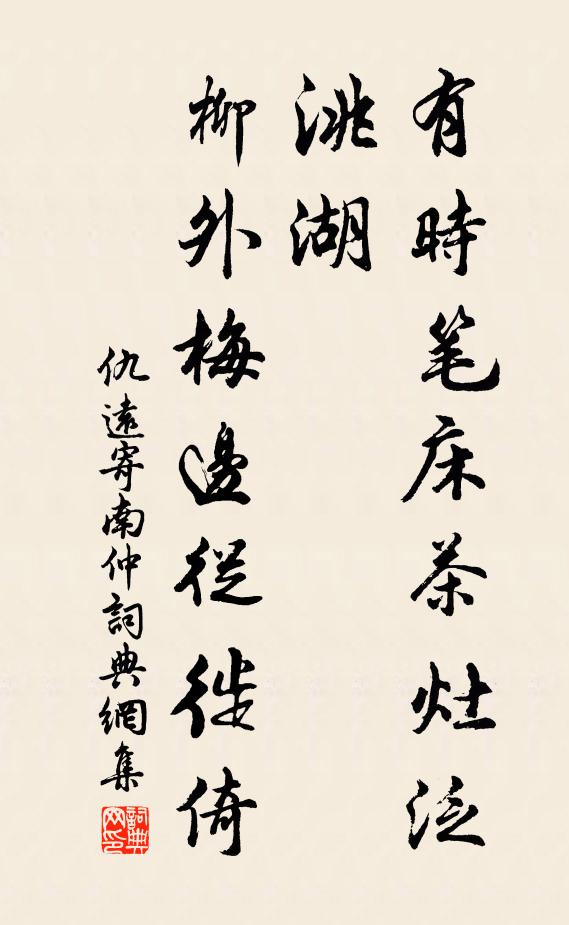 有時笔床茶灶泛
洮湖
柳外梅邊從徙倚
仇遠寄南仲詞典網集
詞典网印